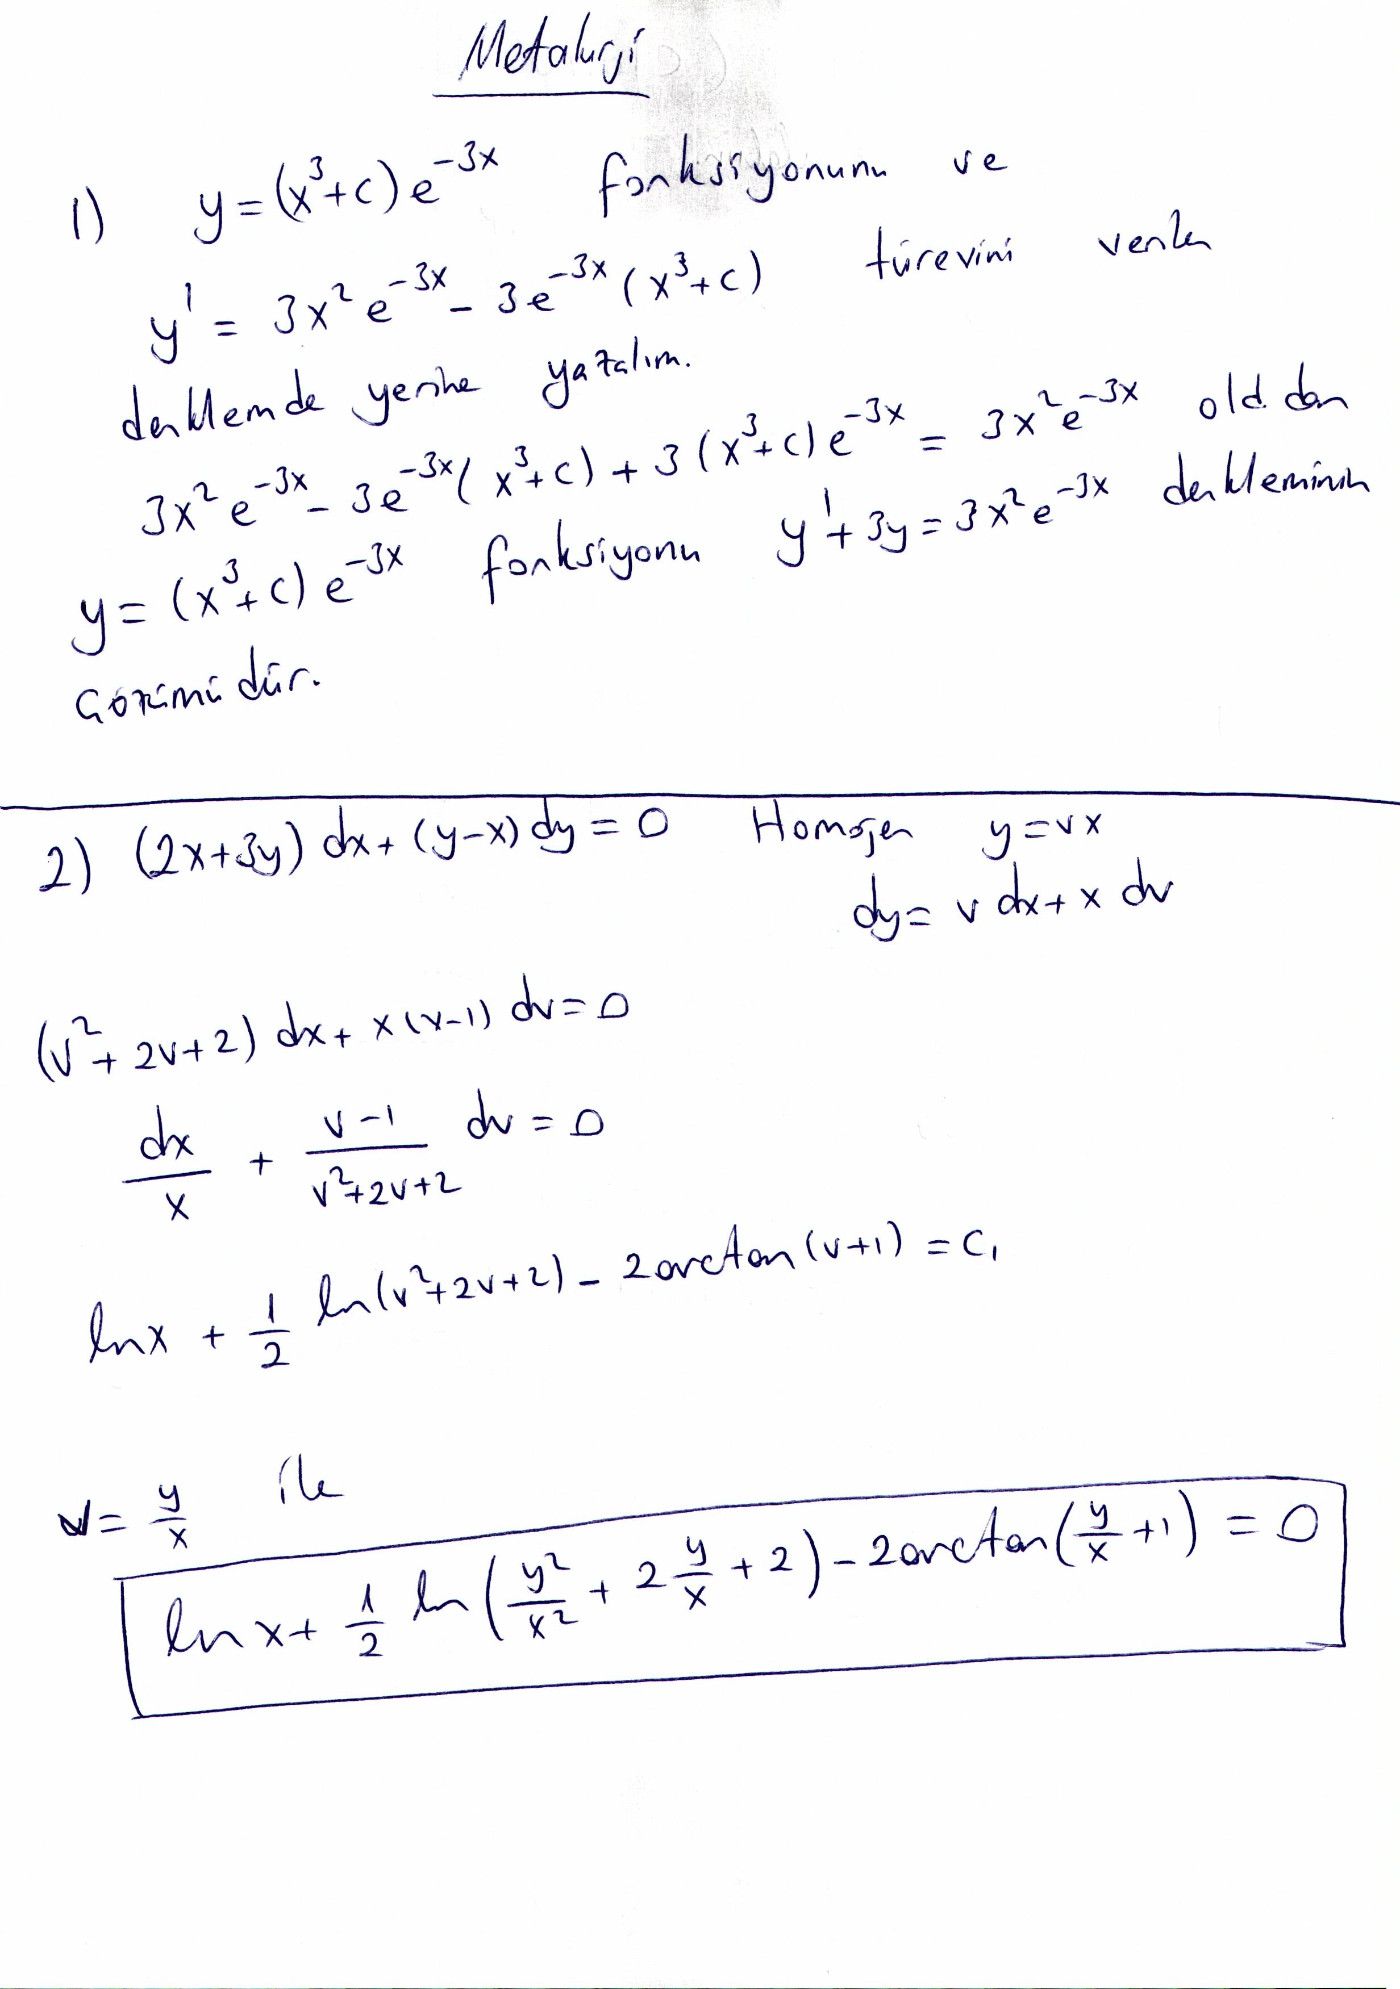 Metalurji
1) y = (x³+c) e^{-3x} fonksiyonunu ve
y' = 3x² e^{-3x} - 3e^{-3x} (x³+c) türevini verilen
denklemde yerine yazalım.
3x² e^{-3x} - 3e^{-3x} (x³+c) + 3 (x³+c) e^{-3x} = 3x² e^{-3x} old. dan
y = (x³+c) e^{-3x} fonksiyonu y' + 3y = 3x² e^{-3x} denkleminin
çözümüdür.
2) (2x+3y) dx + (y-x) dy = 0 Homojen y = vx
dy = v dx + x dv
(v² + 2v + 2) dx + x (v-1) dv = 0
dx/x + (v-1)/(v²+2v+2) dv = 0
ln x + 1/2 ln (v²+2v+2) - 2 arctan (v+1) = c₁
v = y/x ile
ln x + 1/2 ln (y²/x² + 2 y/x + 2) - 2 arctan (y/x + 1) = 0